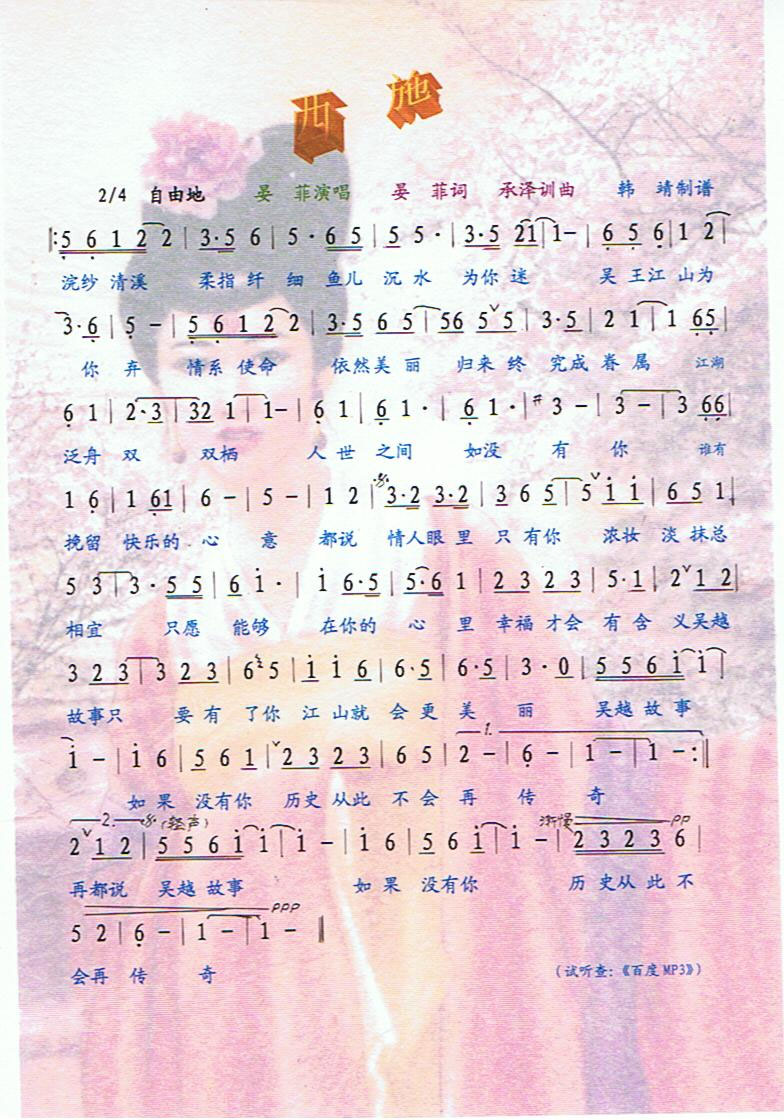 西施
2/4 自由地 晏 菲演唱 晏 菲词 承泽训曲 韩 靖制谱
|:5 6 1 2 2 | 3·5 6 | 5 · 6 5 | 5 5 · | 3·5 21 | 1– | 6 5 6 | 1 2 |
浣纱 清溪 柔指 纤 细 鱼儿 沉 水 为你 迷 吴 王江 山为
3·6 | 5 – | 5 6 1 2 2 | 3·5 6 5 | 56 5ˇ5 | 3·5 | 2 1 | 1 65 |
你 弃 情系 使命 依然美 丽 归来 终 究成 眷 属 江湖
6 1 | 2·3 | 32 1 | 1– | 6 1 | 6 1 · | 6 1 · | #3 – | 3 – | 3 66 |
泛舟 双 双栖 人 世 之间 如没 有 你 谁有
1 6 | 1 61 | 6 – | 5 – | 1 2 | 3·2 3·2 | 3 6 5 | 5ˇi i | 6 5 1 |
挽留 快乐的 心 意 都说 情人眼 里 只 有你 浓妆 淡 抹总
5 3 | 3 · 5 5 | 6 i · | i 6·5 | 5·6 1 | 2 3 2 3 | 5·1 | 2ˇ1 2 |
相宜 只愿 能够 在你的 心 里 幸福 才会 有 含 义吴越
3 2 3 | 3 2 3 | 6 5 | i i 6 | 6·5 | 6·5 | 3·0 | 5 5 6 i i |
故事只 要 有 了你 江 山就 会 更 美 丽 吴越 故 事
i – | i 6 | 5 6 1 |ˇ2 3 2 3 | 6 5 | 1. 2 – | 6 – | 1 – | 1 – :||
如 果 没有你 历史 从此 不 会 再 传 奇
2. (轻声) 渐慢 pp
2ˇ1 2 | 5 5 6 i i | i – | i 6 | 5 6 i | i – | 2 3 2 3 6 |
再都说 吴越 故事 如 果 没有你 历 史从 此 不
ppp
5 2 | 6 – | 1 – | 1 – ||
会再 传 奇
(试听查:《百度 MP3》)